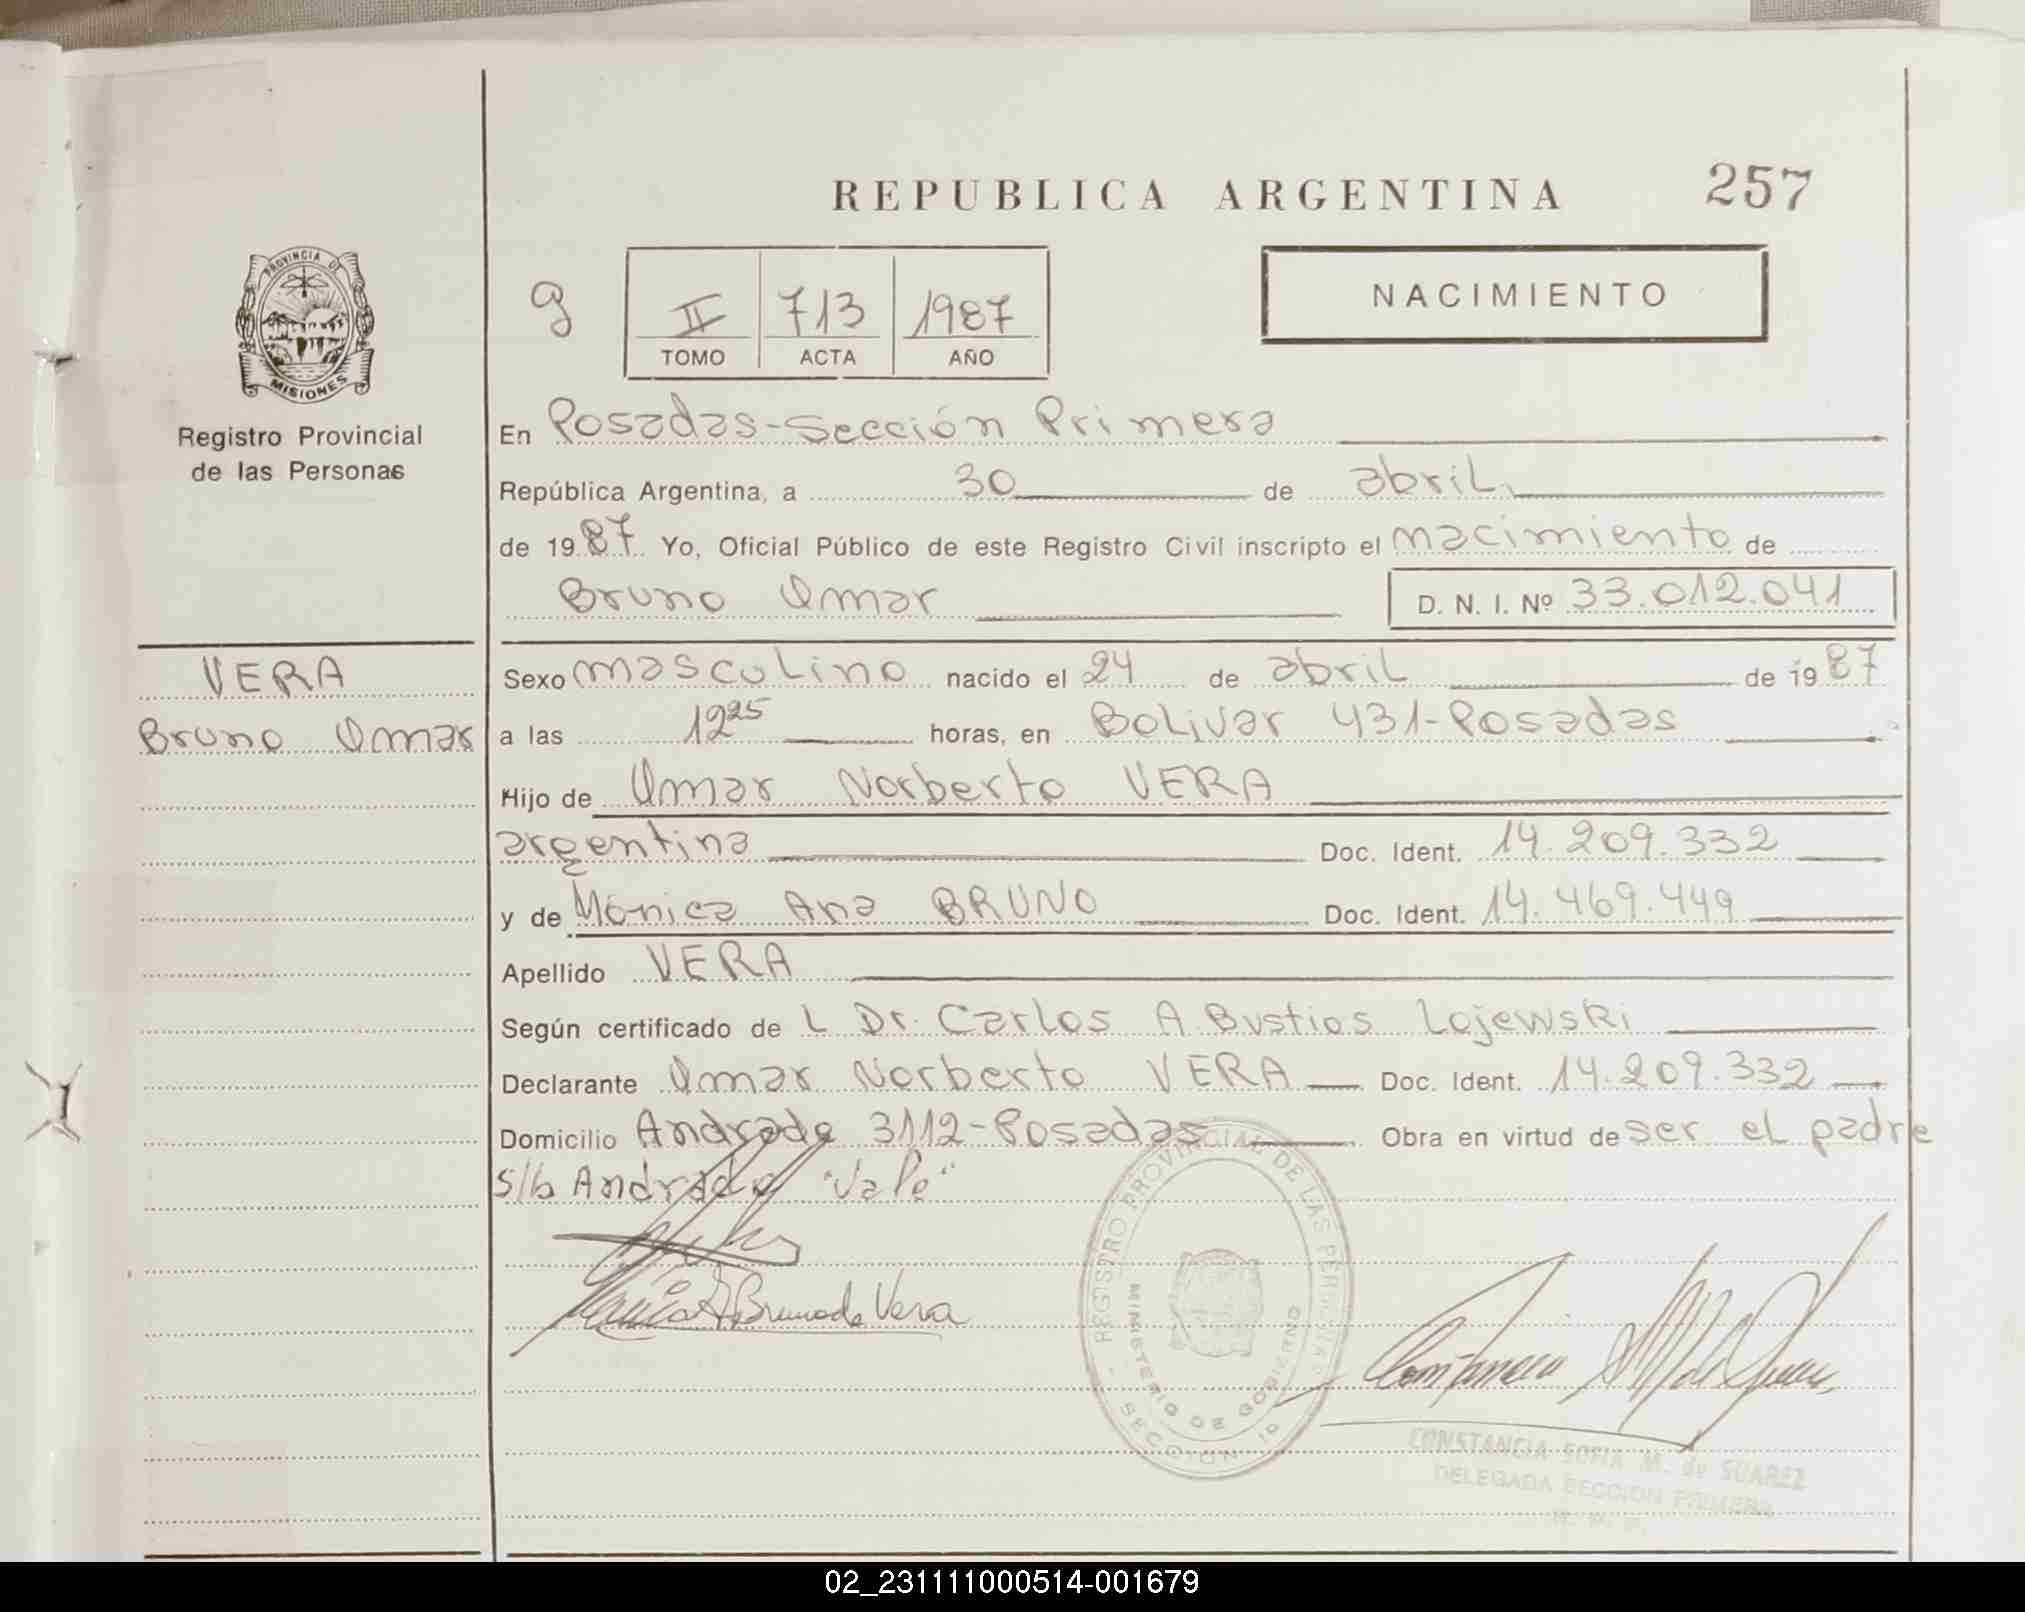 REPUBLICA ARGENTINA
257
PROVINCIA DE
MISIONES
Registro Provincial
de las Personas
g
II 713 1987
TOMO ACTA AÑO
NACIMIENTO
En Posadas-Sección Primera
República Argentina, a 30 de abril,
de 1987 Yo, Oficial Público de este Registro Civil inscripto el nacimiento de
Bruno Omar D. N. I. Nº 33.012.041
VERA
Bruno Omar
Sexo masculino nacido el 24 de abril de 1987
a las 12 25 horas, en Bolivar 431-Posadas
Hijo de Omar Norberto VERA
argentina Doc. Ident. 14.209.332
y de Mónica Ana BRUNO Doc. Ident. 14.469.449
Apellido VERA
Según certificado de L Dr. Carlos A Bustios Lojewski
Declarante Omar Norberto VERA Doc. Ident. 14.209.332
Domicilio Andrade 3112-Posadas Obra en virtud de ser el padre
s/b Andrade "Vale"
Bruno de Vera
REGISTRO PROVINCIAL DE LAS PERSONAS
MINISTERIO DE GOBIERNO
SECCION 1a
CONSTANCIA SOFIA M. de SUAREZ
DELEGADA SECCION PRIMERA
02_231111000514-001679